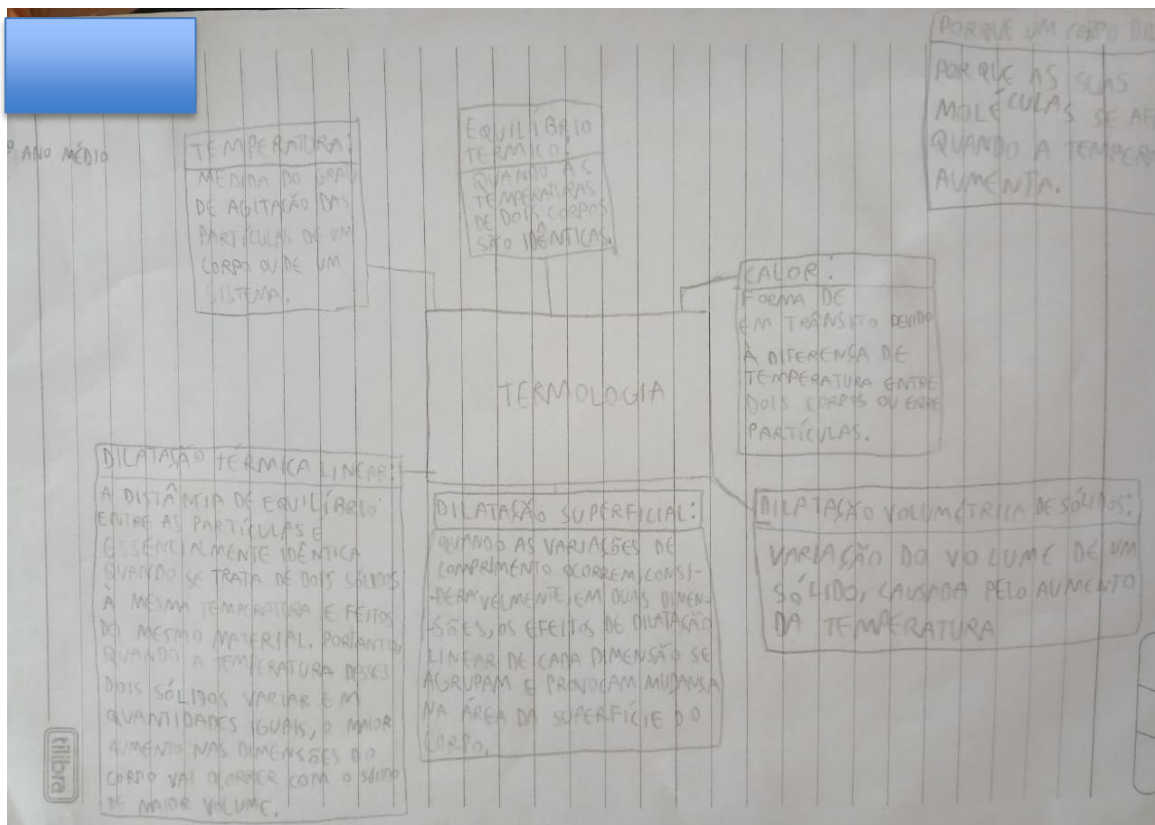 º ANO MÉDIO
TEMPERATURA:
MEDIDA DO GRAU
DE AGITAÇÃO DAS
PARTÍCULAS DE UM
CORPO OU DE UM
SISTEMA.
EQUILÍBRIO
TÉRMICO:
QUANDO AS
TEMPERATURAS
DE DOIS CORPOS
SÃO IDÊNTICAS
PORQUE UM CORPO
POR QUE AS SUAS
MOLÉCULAS SE
QUANDO A
AUMENTA.
CALOR:
FORMA DE
EM TRÂNSITO DEVIDO
À DIFERENSA DE
TEMPERATURA ENTRE
DOIS CORPOS OU ENTRE
PARTÍCULAS.
TERMOLOGIA
DILATASÃO TÉRMICA LINEAR:
A DISTÂNCIA DE EQUILÍBRIO
ENTRE AS PARTÍCULAS É
ESSENCIALMENTE IDÊNTICA
QUANDO SE TRATA DE DOIS SÓLIDOS
À MESMA TEMPERATURA E FEITOS
DO MESMO MATERIAL. PORTANTO,
QUANDO A TEMPERATURA DESSES
DOIS SÓLIDOS VARIAR EM
QUANTIDADES IGUAIS, O MAIOR
AUMENTO NAS DIMENSÕES DO
CORPO VAI OCORRER COM O SÓLIDO
DE MAIOR VOLUME.
DILATASÃO SUPERFICIAL:
QUANDO AS VARIAÇÕES DE
COMPRIMENTO OCORREM, CONSI-
DERÁVELMENTE, EM DUAS DIMEN-
-SÕES, OS EFEITOS DE DILATAÇÃO
LINEAR DE CADA DIMENSÃO SE
AGRUPAM E PROVOCAM MUDANSA
NA ÁREA DA SUPERFÍCIE DO
CORPO.
DILATASÃO VOLUMÉTRICA DE SÓLIDOS:
VARIAÇÃO DO VOLUME DE UM
SÓLIDO, CAUSADA PELO AUMENTO
DA TEMPERATURA
tilibra